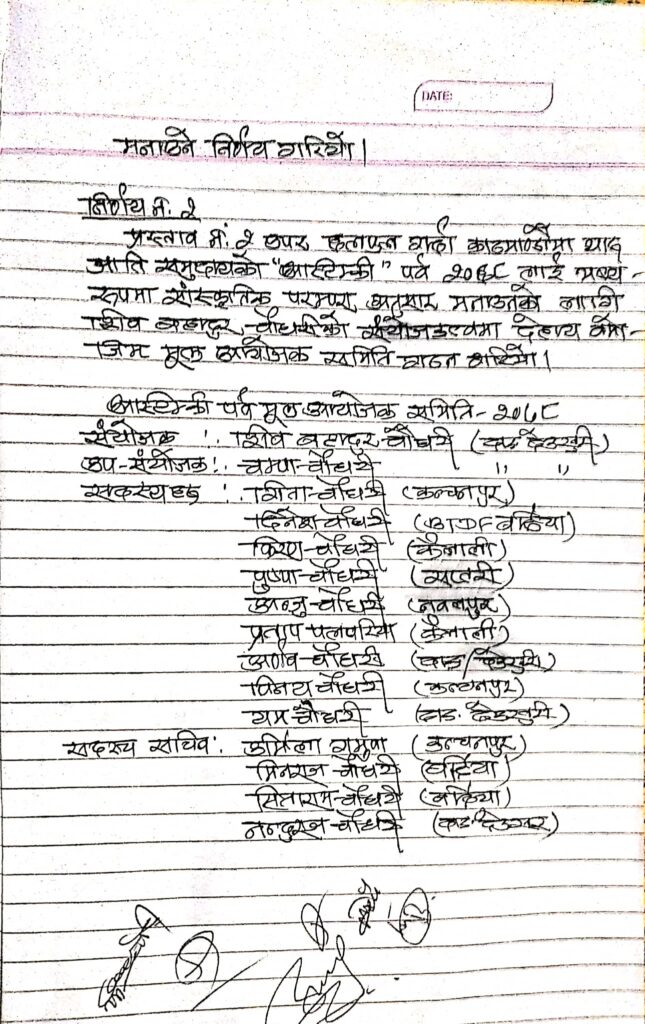 DATE:
मनाउने निर्णय गरियो।
निर्णय नं: २
प्रस्ताव नं: २ उपर छलफल गर्दा काठमाण्डौमा थारु
जाति समुदायको "आस्टिम्की" पर्व २०६८ लाई भब्य
रुपमा सांस्कृतिक परम्परा अनुसार मनाउनको लागि
शिव बहादुर चौधरीको संयोजकत्वमा देहाय बमो-
जिम मूल आयोजक समिति गठन गरियो।
आस्टिम्की पर्व मूल आयोजक समिति - २०६८
संयोजक : शिव बहादुर चौधरी (दाङ देउखुरी)
उप-संयोजक : चम्पा चौधरी " "
सदस्यहरु : गिता चौधरी (कन्चनपुर)
दिनेश चौधरी (बर्दिया)
किरण चौधरी (कैलाली)
पुष्पा चौधरी (सप्तरी)
अन्जु चौधरी (नवलपुर)
प्रताप (कैलाली)
चौधरी (दाङ/देउखुरी)
विनय चौधरी (कन्चनपुर)
राम चौधरी (दाङ देउखुरी)
सदस्य सचिव : उर्मिला (कन्चनपुर)
मिनराज चौधरी (बर्दिया)
सिताराम चौधरी (बर्दिया)
चौधरी